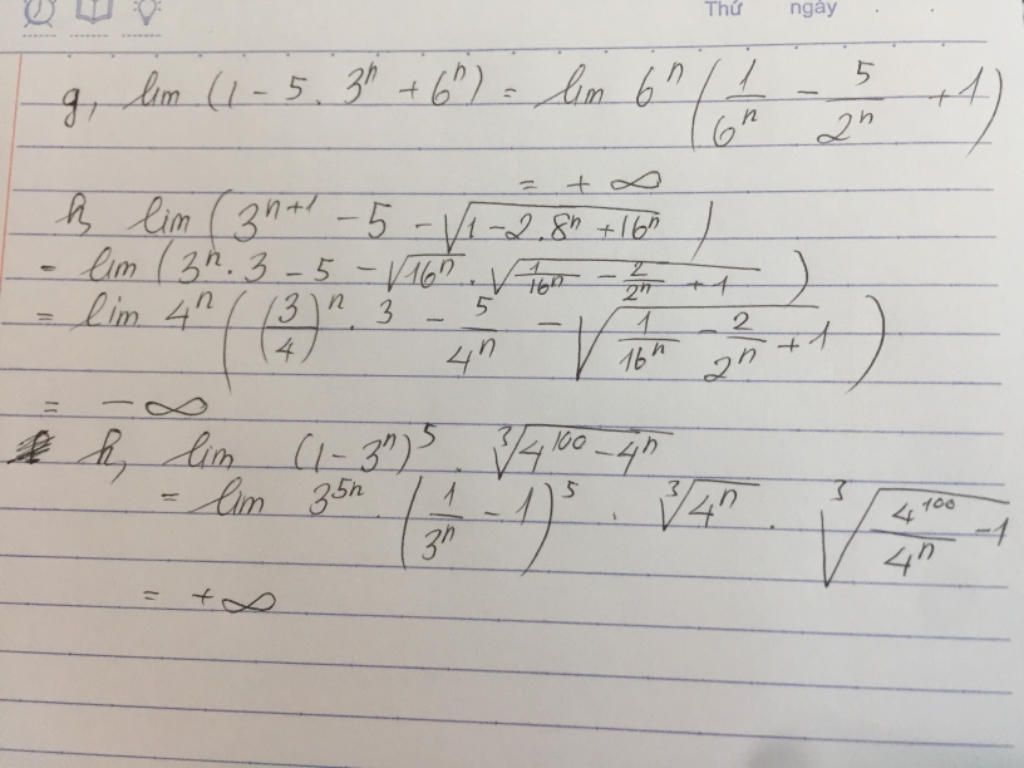 Thứ ngày
g, lim (1 - 5 . 3ⁿ + 6ⁿ) = lim 6ⁿ (1/6ⁿ - 5/2ⁿ + 1)
= + ∞
h, lim (3ⁿ⁺¹ - 5 - √(1 - 2.8ⁿ + 16ⁿ))
= lim (3ⁿ . 3 - 5 - √(16ⁿ) . √(1/16ⁿ - 2/2ⁿ + 1))
= lim 4ⁿ ((3/4)ⁿ . 3 - 5/4ⁿ - √(1/16ⁿ - 2/2ⁿ + 1))
= - ∞
h, lim (1 - 3ⁿ)⁵ . ∛(4¹⁰⁰ - 4ⁿ)
= lim 3⁵ⁿ . (1/3ⁿ - 1)⁵ . ∛(4ⁿ) . ∛(4¹⁰⁰/4ⁿ - 1)
= + ∞